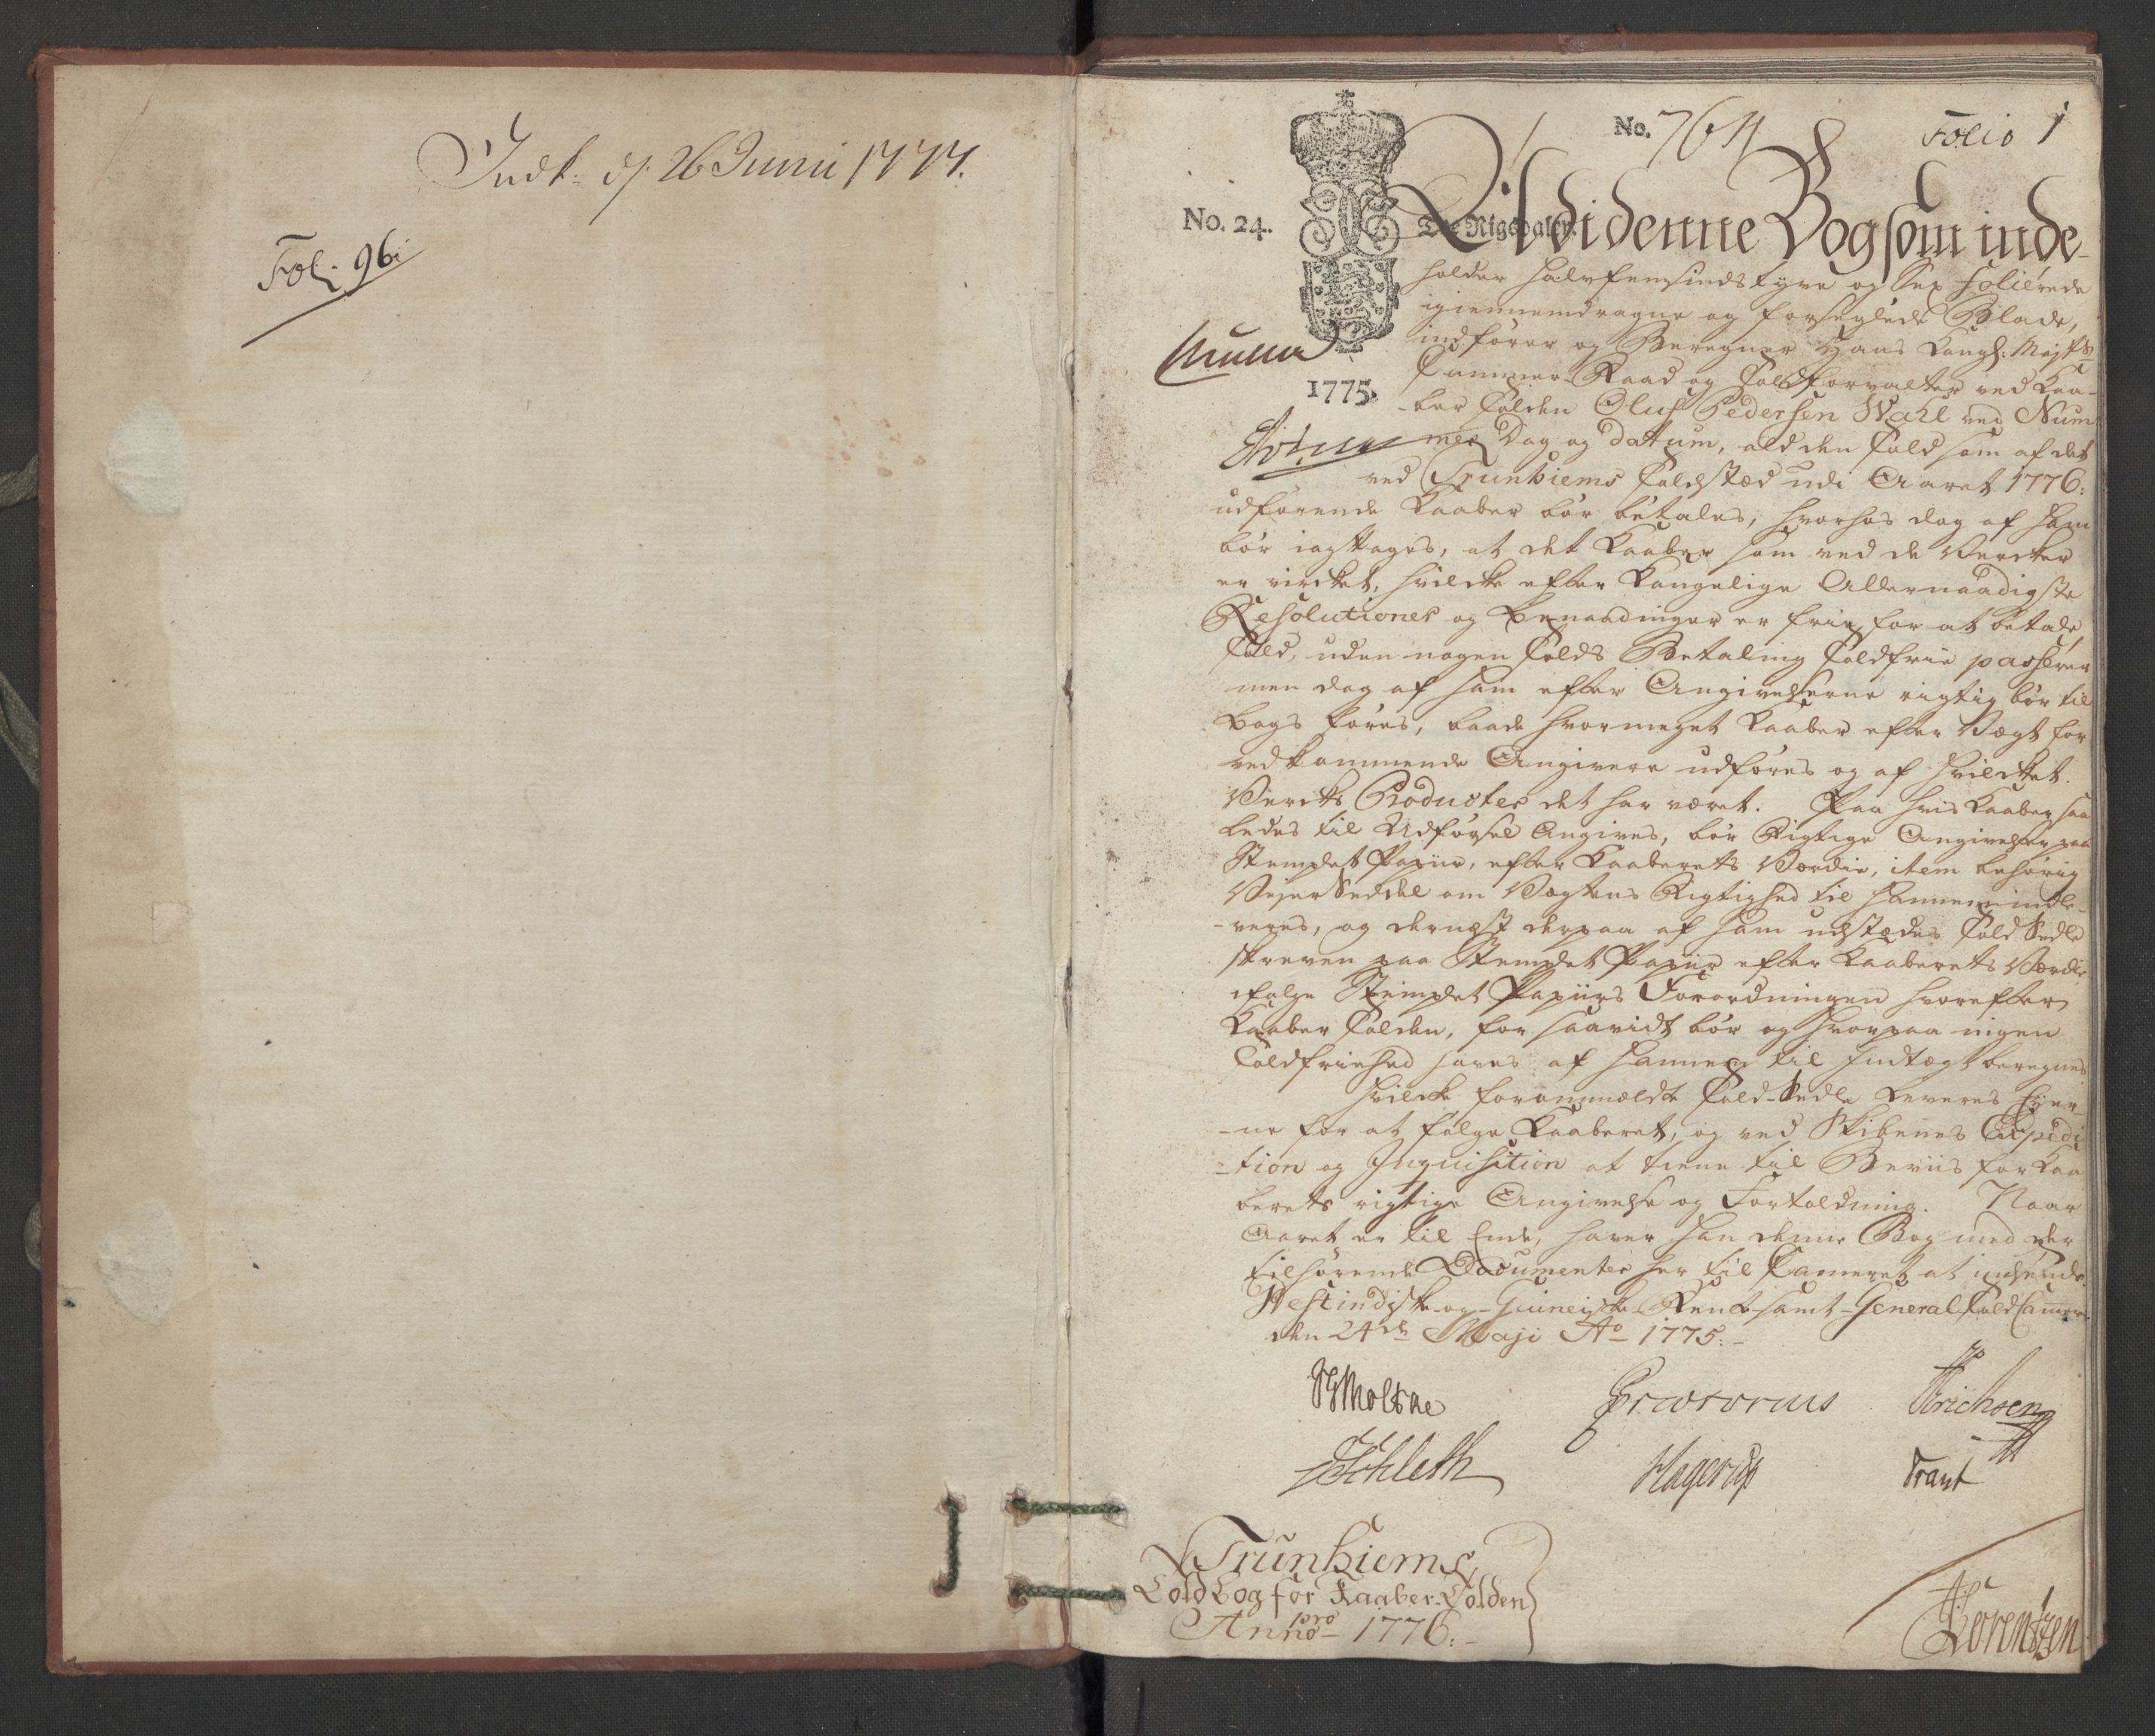 Indk: d. 26 Junii 1777.
Fol: 96:
No. 764
Folio 1
No. 24.
Tre Rigsdaler.
1775.
Udi denne Bog som inde-
holder halvfemsindstyve og Sex folierede
igiennemdragne og forseglede Blade,
indfører og Beregner Hans Kongl: Mayts
Cammer-Raad og Toldforvalter ved Kaa-
ber Tolden Oluf Pedersen Wahl ved Num-
mer, Dag og datum, ald den Told som af det
ved Trunhiems Toldsted udi Aaret 1776:
udførende Kaaber bør betales, hvorhos dog af ham
bør iagttages, at det Kaaber som ved de Vercker
er virchet, hvilcke efter Kongelige Allernaadigste
Resolutioner og benaadninger er frie for at betale
Told, uden nogen Tolds Betaling Toldfrie passerer
men dog af ham efter Angivelserne rigtig bør til
bogs føres, baade hvormeget Kaaber efter Vægt for
vedkommende Angivere udføres og af hvilcket
Vercks Producter det har været. Paa hvis Kaaber saa
ledes til Udførsel angives, bør Rigtige Angivelser paa
Stemplet Papiir, efter Kaaberets Værdie, item behørig
Veyer Seddel om Vægtens Rigtighed til hannem indle-
-veres, og dernæst derpaa af ham udstædes Told Sedle
skreven paa Stemplet Papiir efter Kaaberets Værdie
ifølge Stemplet Papiirs Forordningen hvorefter
Kaaber Tolden, for saavidt bør og hvorpaa ingen
Toldfriehed haves af hannem til Indtægt beregnes
Hvilcke forommeldte Told-Sedle leveres Eyer-
-ne for at følge Kaaberet, og ved Skibenes Expedi
-tion og Inquisition at tiene til Beviis for Kaa
berets rigtige Angivelse og Fortoldning. Naar
Aaret er til Ende, haver han denne Bog med der
tilhørende Documenter her til Cammeret at indsende.
Westindiske- og Guineiske Rente- samt General-Told Cammeret
den 24de Maji Ao 1775.-
Moltske
Erichsen
Schleth
Hagerup
Trant
Trunhiems
Told bog for Kaaber-Tolden
pro
Anno 1776.-
Lorentzen